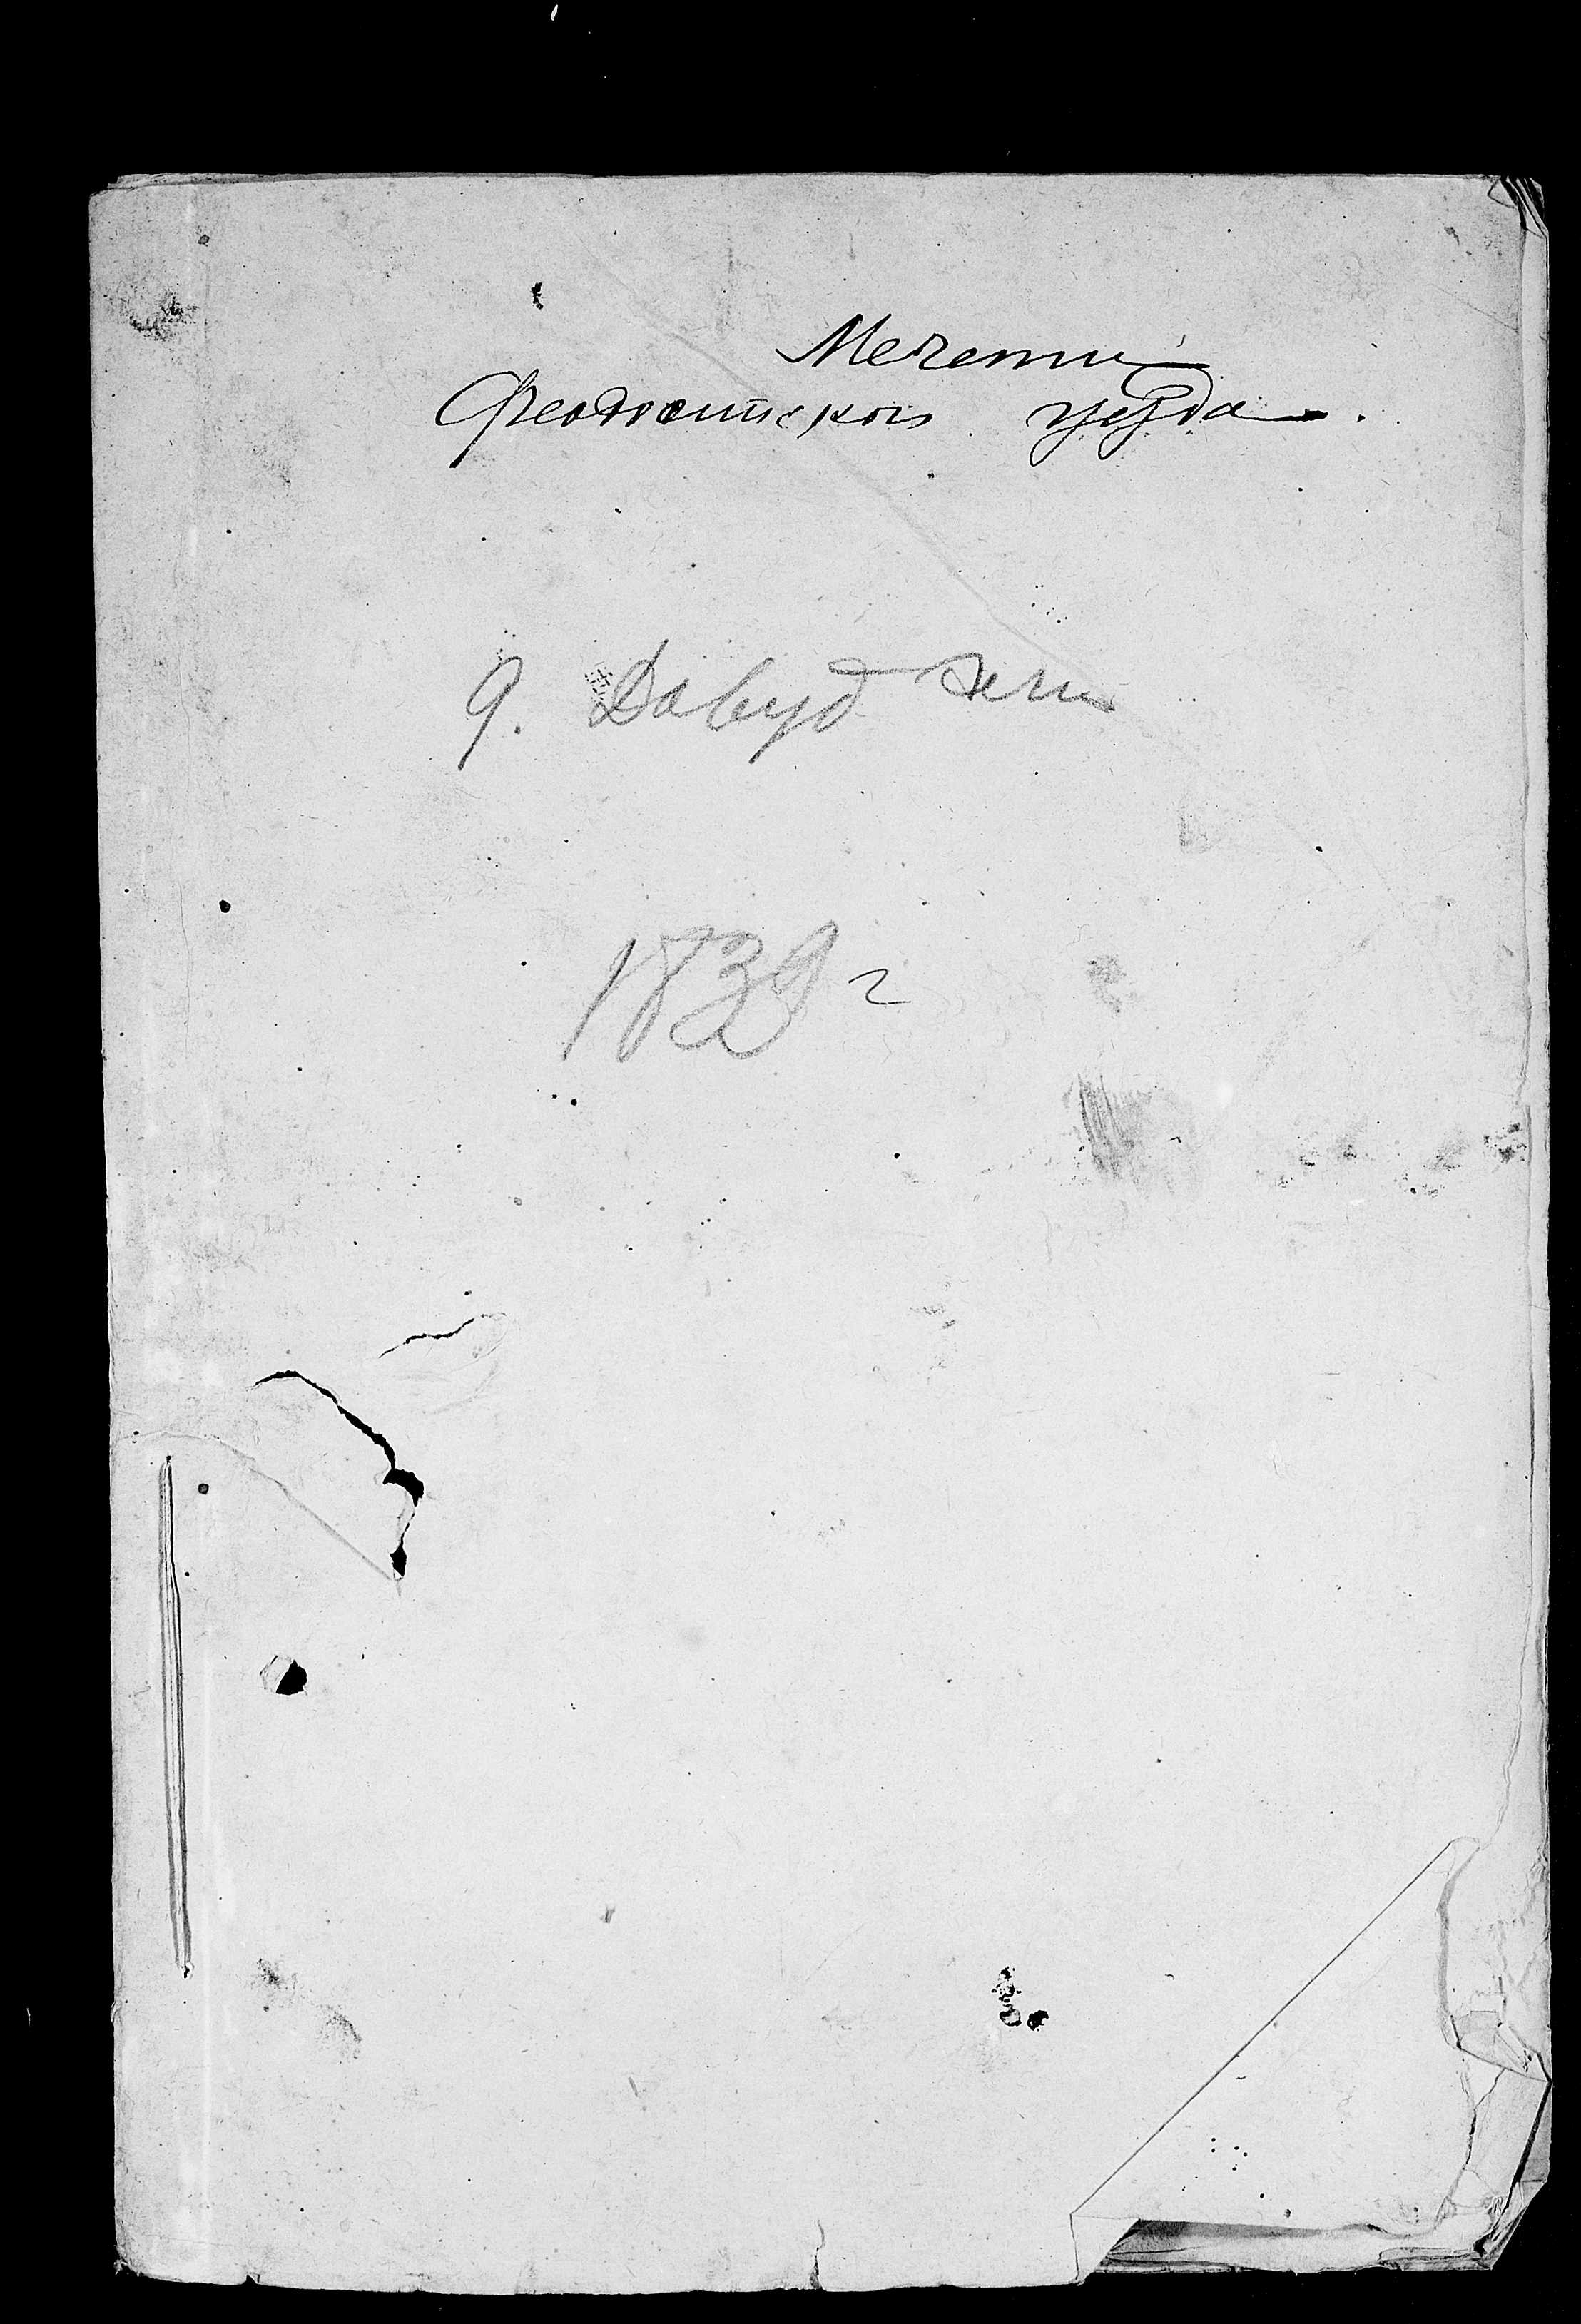 Мечети
Феодосийского уезда.
д. Давуд Эли
1839 г